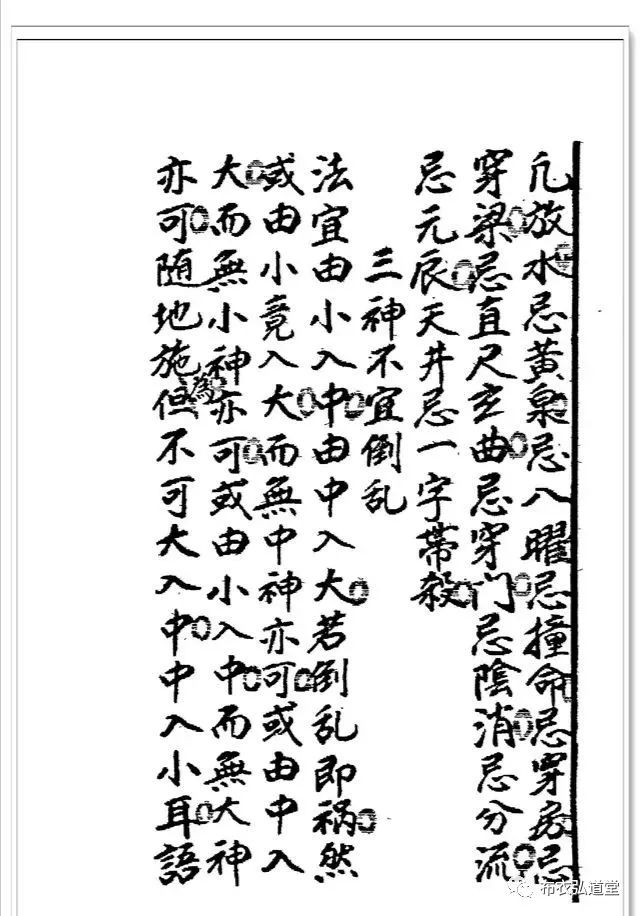 凢放水忌黃泉忌八曜忌撞命忌穿房忌
穿梁忌直尺玄曲忌穿门忌陰消忌分流
忌元辰天井忌一字帶殺
三神不宜倒乱
法宜由小入中由中入大若倒乱即祸然
或由小竟入大而無中神亦可或由中入
大而無小神亦可或由小入中而無大神
亦可随地施為但不可大入中中入小耳語
布衣弘道堂